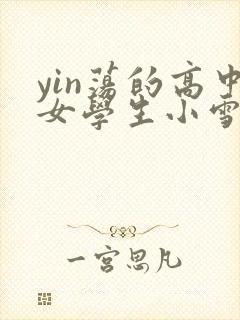 yin蕩的高中
女學生小雪
一宮思凡